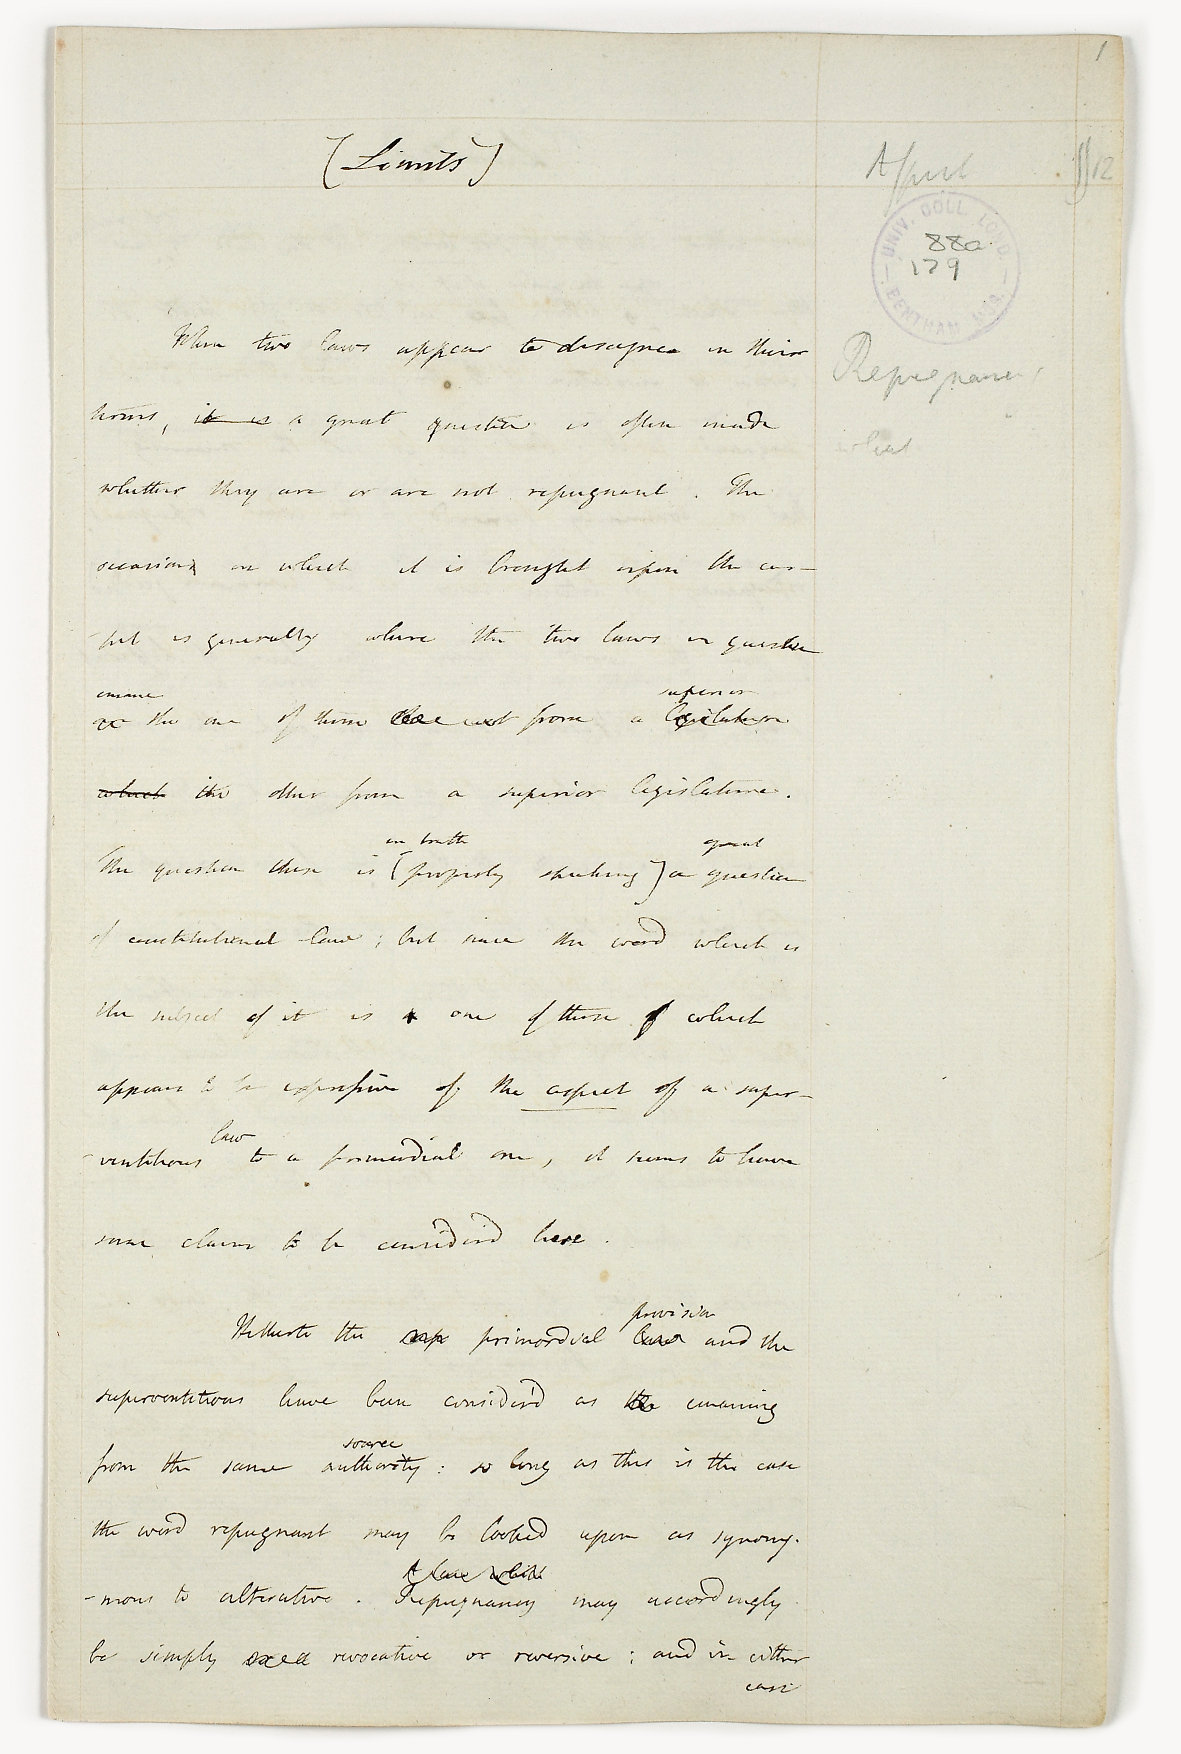 1
[Limits]
April
§§12
UNIV. COLL. LOND.
BENTHAM MSS.
88a
179
Repugnancy
what
When two laws appear to disagree in their
terms, it is a great question is often made
whether they are or are not repugnant. The
occasions on which it is brought upon the car-
-pet is generally where the two laws in question
emane superior
the one of them from a legislature
which the other from a superior legislature.
in truth great
The question then is [properly speaking] a question
of constitutional law; but since the word which is
the subject of it is one of those of which
appears to be expressive of the aspect of a super-
law
-ventitious to a primordial one, it seems to have
some claim to be consider'd here.
provision
Hitherto the primordial law and the
superventitious have been consider'd as the emaning
source
from the same authority: so long as this is the case
the word repugnant may be looked upon as synony-
A law which
-mous to alterative. Repugnancy may accordingly
be simply revocative or reversive; and in either
case